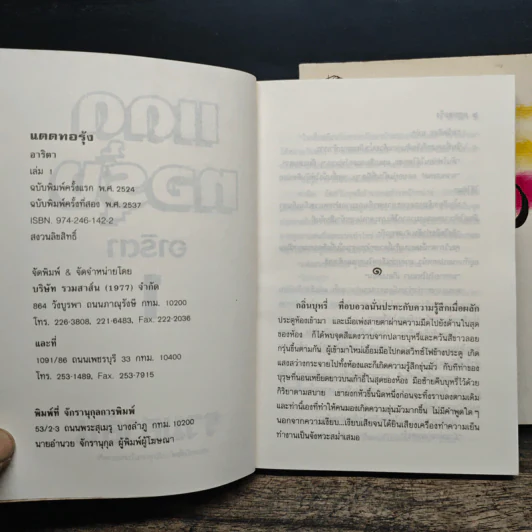 แดดทอรุ้ง
อาริตา
เล่ม 1
ฉบับพิมพ์ครั้งแรก พ.ศ. 2524
ฉบับพิมพ์ครั้งที่สอง พ.ศ. 2537
ISBN. 974-246-142-2
สงวนลิขสิทธิ์
จัดพิมพ์ & จัดจำหน่ายโดย
บริษัท รวมสาส์น (1977) จำกัด
864 วังบูรพา ถนนภาณุรังษี กทม. 10200
โทร. 226-3808, 221-6483, Fax. 222-2036
และที่
1091/86 ถนนเพชรบุรี 33 กทม. 10400
โทร. 253-1489, Fax. 253-7915
พิมพ์ที่ จักรานุกูลการพิมพ์
53/2-3 ถนนพระสุเมรุ บางลำภู กทม. 10200
นายอำนวย จักรานุกูล ผู้พิมพ์ผู้โฆษณา
๑
กลิ่นบุหรี่ ที่อบอวลนั่นปะทะกับความรู้สึกเมื่อผลัก
ประตูห้องเข้ามา และเมื่อเพ่งสายตาผ่านความมืดไปยังด้านในสุด
ของห้อง ก็ได้พบจุดสีแดงวาบจากปลายบุหรี่และควันสีขาวลอย
กรุ่นขึ้นตามกัน ผู้เข้ามาใหม่เอื้อมมือไปกดสวิทช์ไฟข้างประตู เกิด
แสงสว่างกระจายไปทั้งห้องและก็เกิดความรู้สึกขุ่นมัว กับทีท่าของ
บุรุษที่นอนเหยียดยาวบนเก้าอี้ในสุดของห้อง มือซ้ายคีบบุหรี่ไว้ด้วย
กิริยาตามสบาย เขาผงกหัวขึ้นนิดหนึ่งก่อนจะทิ้งราบลงตามเดิม
และท่านี้เองที่ทำให้คนมองเกิดความขุ่นมัวมากขึ้น ไม่มีคำพูดใด ๆ
นอกจากความเงียบ...เงียบเสียจนได้ยินเสียงเครื่องทำความเย็น
ทำงานเป็นจังหวะสม่ำเสมอ